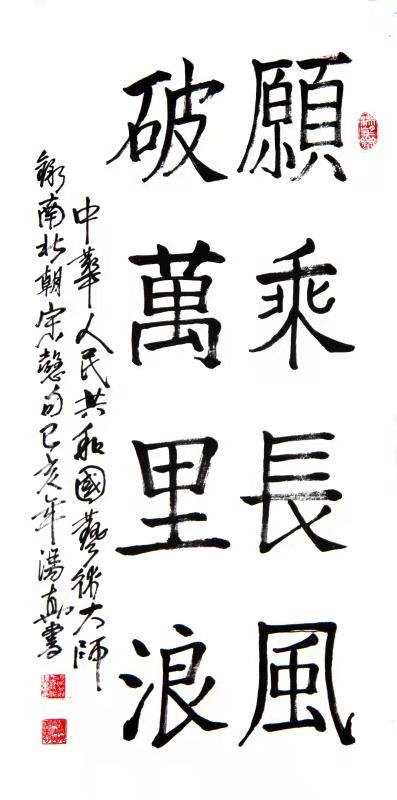 願乘長風
破萬里浪
中華人民共和國藝術大師
錄南北朝宗慤句己亥年湯真書